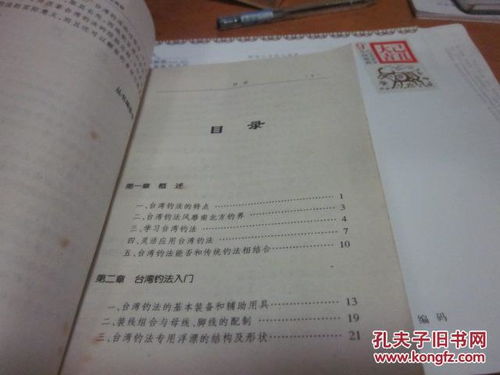 目录
第一章 概述
一、台湾钓法的特点 1
二、台湾钓法风靡南北方钓界 3
三、学习台湾钓法 4
四、灵活应用台湾钓法 7
五、台湾钓法能否和传统钓法相结合 10
第二章 台湾钓法入门
一、台湾钓法的基本装备和辅助用具 13
二、装线组合与母线、脚线的配制 19
三、台湾钓法专用浮漂的结构及形状 21
编码
孔夫子旧书网
www.kongfz.com